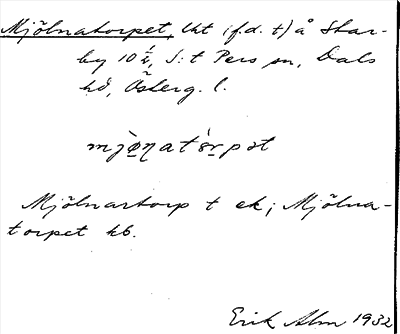 Mjölnatorpet, lht (f.d. t) å Skar-
by 10 S:t Pers sn, Dals
hd, Österg. l.
Mjölnartorp t ek; Mjölna-
torpet kb.
Erik Alm 1932